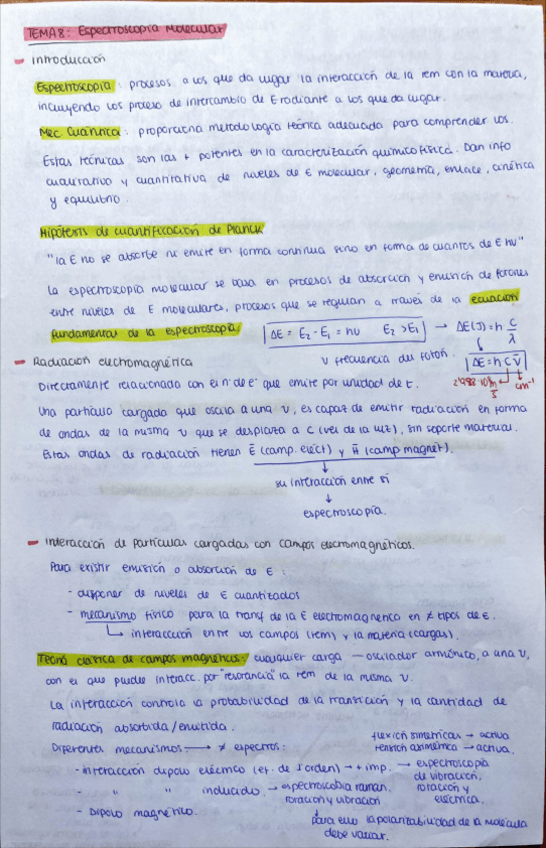 TEMA 8: Espectroscopia Molecular
- Introducción
Espectroscopia: procesos a los que da lugar la interacción de la rem con la materia,
incluyendo los proceso de intercambio de E radiante a los que da lugar.
Mec Cuántica: proporciona metodología teórica adecuada para comprender los.
Estas técnicas son las + potentes en la caracterización químicofísica. Dan info
cualitativo y cuantitativa de niveles de E molecular, geometría, enlace, cinética
y equilibrio.
Hipótesis de cuantificación de Planck
"la E no se absorbe ni emite en forma continua sino en forma de cuantos de E hν"
La espectroscopia molecular se basa en procesos de absorción y emisión de fotones
entre niveles de E moleculares, procesos que se regulan a través de la ecuación
fundamental de la espectroscopia: |ΔE = E₂ - E₁ = hν E₂ > E₁| → ΔE (J) = h c/λ
ν frecuencia del fotón. |ΔE = h c ν̄|
cm⁻¹
- Radiación electromagnética
Directamente relacionado con el nº de e⁻ que emite por unidad de t.
Una partícula cargada que oscila a una ν, es capaz de emitir radiación en forma
de ondas de la misma ν que se desplaza a c (vel de la luz), sin soporte material.
Estas ondas de radiación tienen E̅ (camp. eléct) y H̅ (camp magnét).
↓
su interacción entre sí
↓
espectroscopía.
- Interacción de partículas cargadas con campos electromagnéticos.
Para existir emisión o absorción de E:
- disponer de niveles de E cuantizados
- mecanismo físico para la transf de la E electromagnética en ≠ tipos de E.
↳ interacción entre los campos (rem) y la materia (cargas).
Teoría clásica de campos magnéticos: cualquier carga — oscilador armónico, a una ν,
con el que puede interacc. por "resonancia" la rem de la misma ν.
La interacción controla la probabilidad de la transición y la cantidad de
radiación absorbida/emitida.
Diferentes mecanismos → ≠ espectros:
flexión simétricas → activa
tensión asimétrica → activa.
- interacción dipolo eléctrico (ef. de 1º orden) → + imp. → espectroscopía
de vibración,
rotación y
eléctrica.
- " " inducido. → espectroscopia raman.
rotación y vibración
↓
para ello la polarizabilidad de la molécula
debe variar.
- Dipolo magnético.